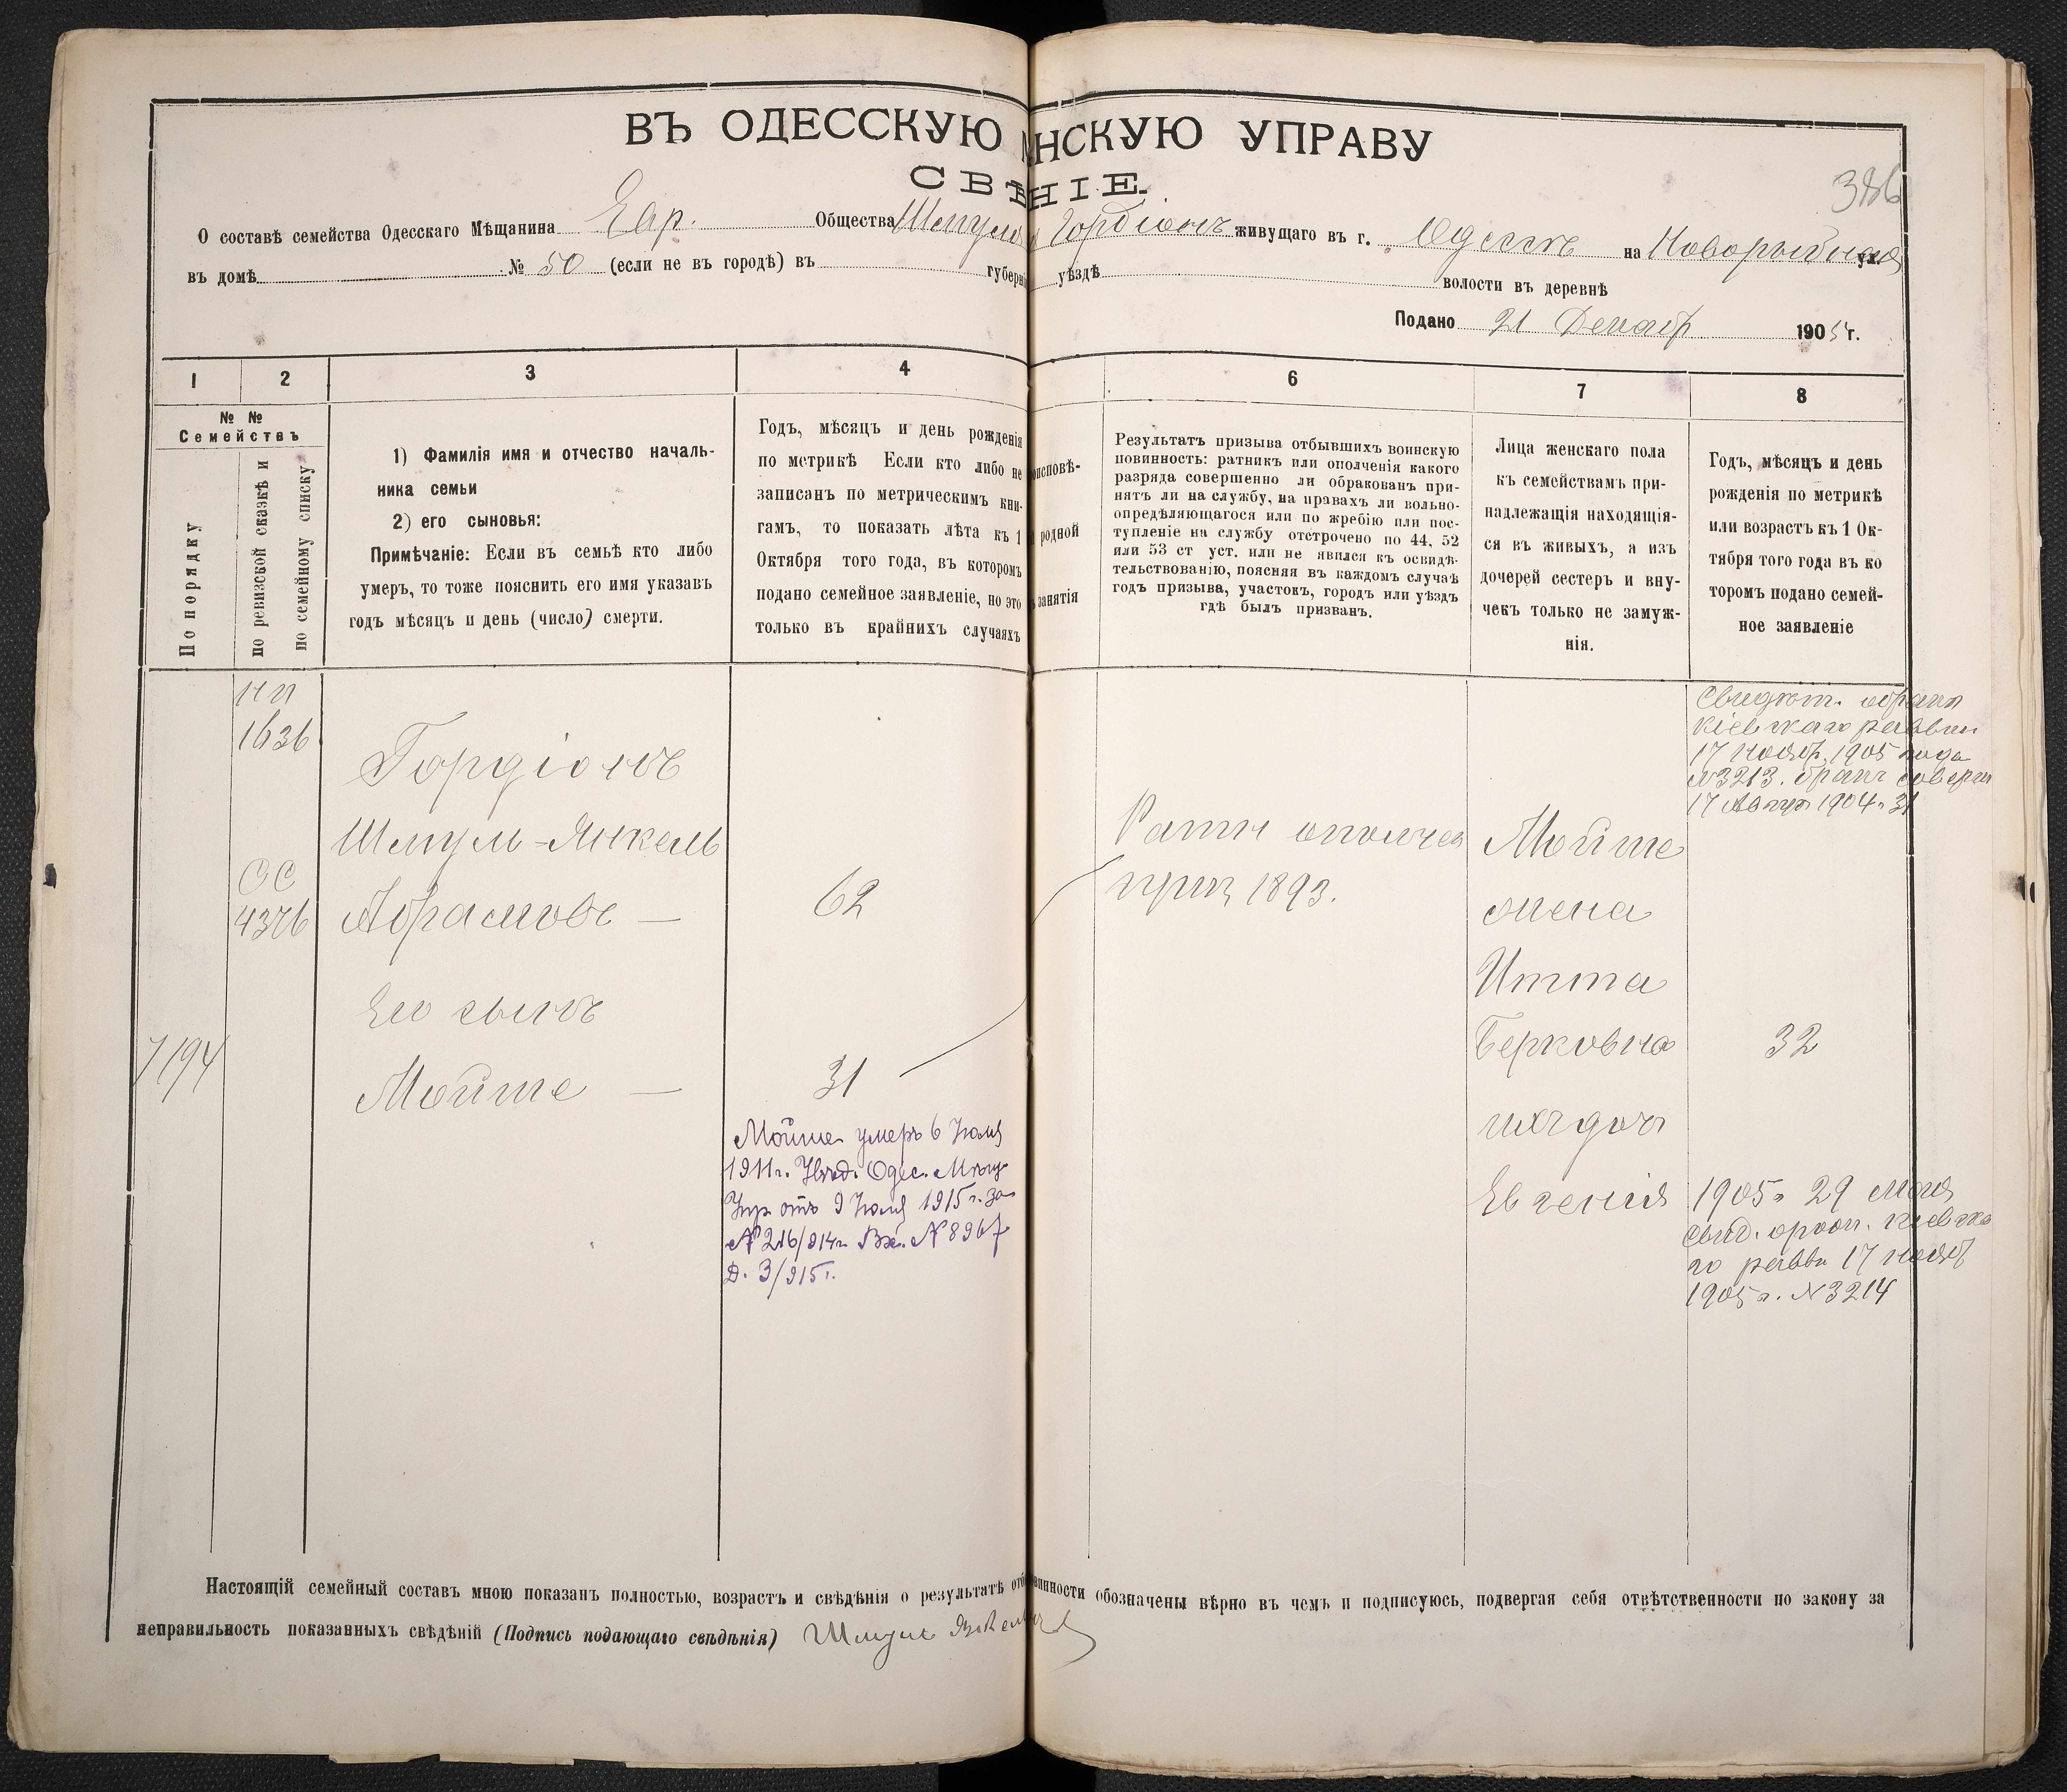 ВЪ ОДЕССКУЮ НСКУЮ УПРАВУ
СВѢ НІЕ.
386
О составѣ семейства Одесскаго Мѣщанина Евр. Общества Шмуля Гордіонъ живущаго въ г. Одессѣ на Новорыбная ул.
въ домѣ № 50 (если не въ городѣ) въ губерні уѣздѣ волости въ деревнѣ
Подано 21 Декабр 1905 г.
1 2 3 4 6 7 8
№ №
Семействъ
По порядку
по ревизской сказкѣ и
по семейному списку
1) Фамилія имя и отчество началь-
ника семьи
2) его сыновья:
Примѣчаніе: Если въ семьѣ кто либо
умеръ, то тоже пояснить его имя указавъ
годъ мѣсяцъ и день (число) смерти.
Годъ, мѣсяцъ и день рожденія
по метрикѣ Если кто либо не
записанъ по метрическимъ кни-
гамъ, то показать лѣта къ 1
Октября того года, въ которомъ
подано семейное заявленіе, но это
только въ крайнихъ случаяхъ
оисповѣ-
родной
занятія
Результатъ призыва отбывшихъ воинскую
повинность: ратникъ или ополченія какого
разряда совершенно ли обракованъ при-
нятъ ли на службу, на правахъ ли вольно-
опредѣляющагося или по жребію или пос-
тупленіе на службу отстрочено по 44, 52
или 53 ст уст. или не явился къ освидѣ-
тельствованію, поясняя въ каждомъ случаѣ
годъ призыва, участокъ, городъ или уѣздъ
гдѣ былъ призванъ.
Лица женскаго пола
къ семействамъ при-
надлежащія находящія-
ся въ живыхъ, а изъ
дочерей сестеръ и вну-
чекъ только не замуж-
нія.
Годъ, мѣсяцъ и день
рожденія по метрикѣ
или возрастъ къ 1 Ок-
тября того года въ ко
торомъ подано семей-
ное заявленіе
НП
1636
ОС
4376
7194
Гордіонъ
Шмуль-Янкель
Абрамовъ —
62
Его сынъ
Мойше —
31
Мойше умеръ 6 Іюля
1911г. Увѣд. Одес. Мѣщ.
Упр отъ 9 Іюля 1915 г. за
№ 216/914г. Вх. № 8967
Д. 3/915г.
Ратн ополчен
приз 1893.
Мойше
жена
Итта
Берковна
32
ихъ доч
Евгенія
Свидѣт. о бракѣ
Кіевскаго раввин
17 Ноябр 1905 года
№3213. бракъ соверш
17 Август 1904 г 31
1905 г 29 Мая
Свид. Кіевска
го равви 17 Ноябр
1905 г. №3214
Настоящій семейный составъ мною показанъ полностью, возрастъ и свѣдѣнія о результатѣ отб винности обозначены вѣрно въ чемъ и подписуюсь, подвергая себя отвѣтственности по закону за
неправильность показанныхъ свѣдѣній (Подпись подающаго свѣдѣнія) Шмуль